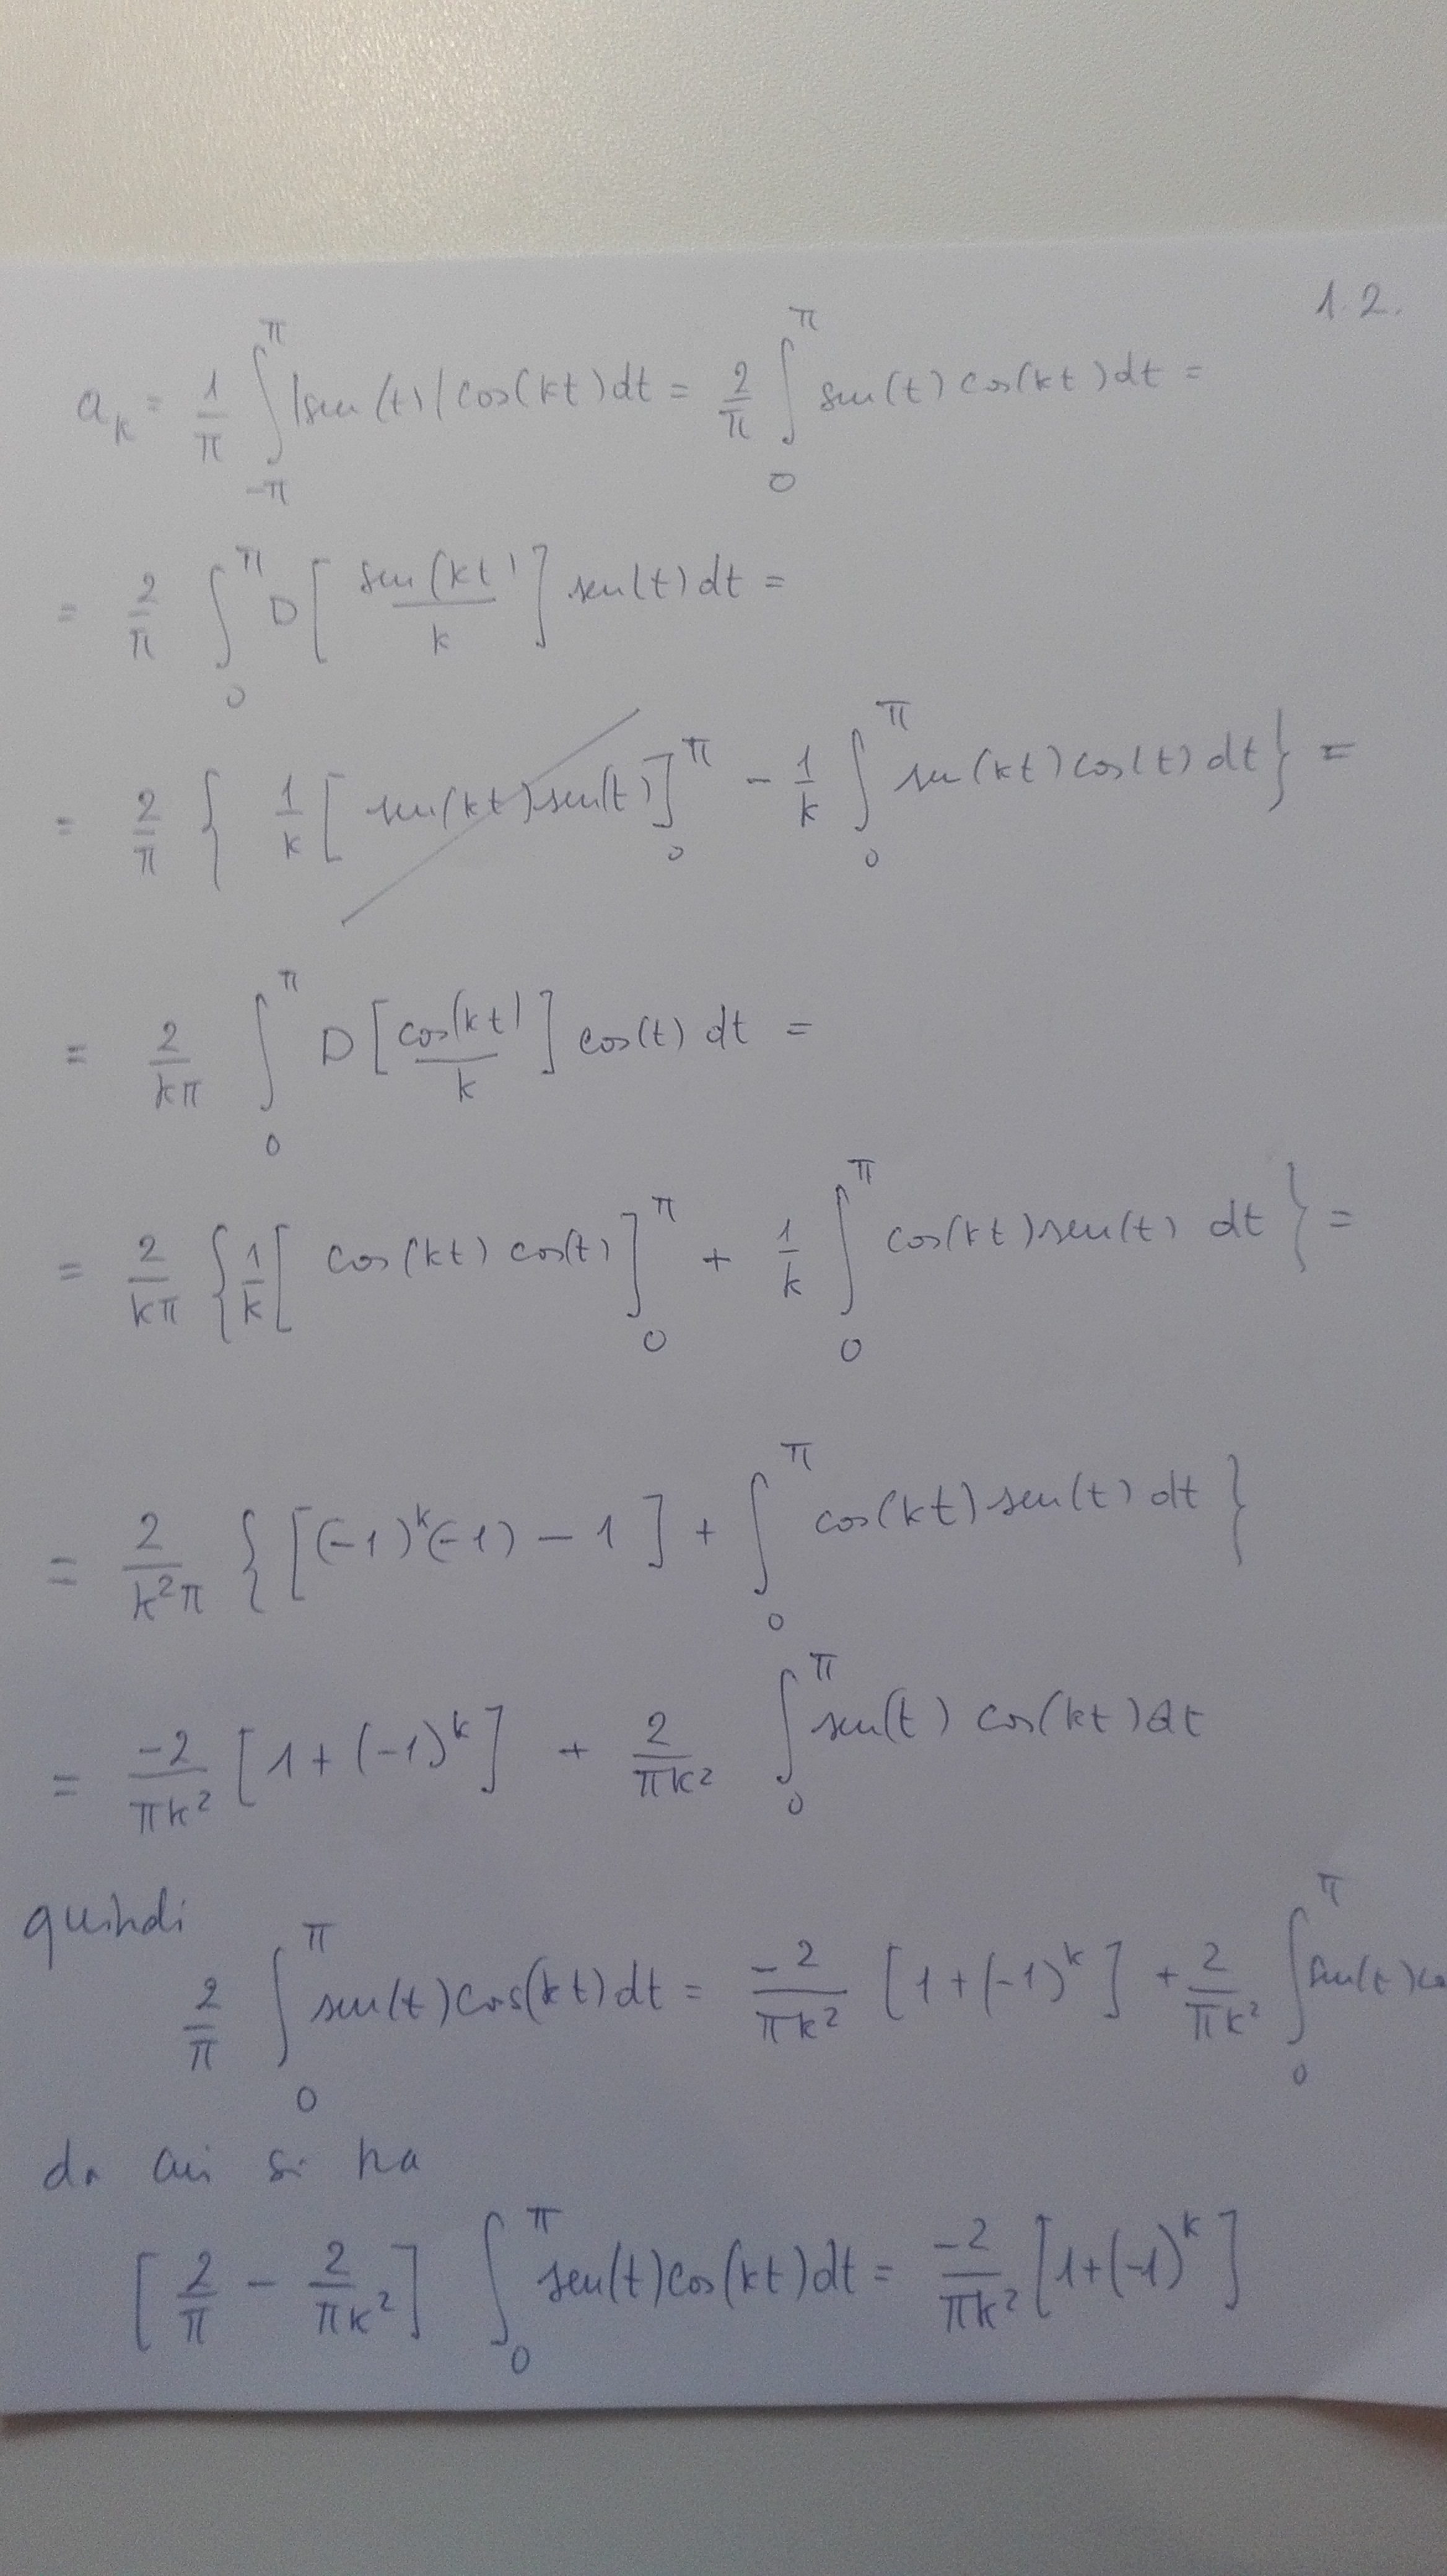 1.2.
a_k = 1/π ∫_{-π}^{π} |sen(t)| cos(kt) dt = 2/π ∫_0^π sen(t) cos(kt) dt =
= 2/π ∫_0^π D[sen(kt)/k] sen(t) dt =
= 2/π { 1/k [sen(kt) sen(t)]_0^π - 1/k ∫_0^π sen(kt) cos(t) dt } =
= 2/kπ ∫_0^π D[cos(kt)/k] cos(t) dt =
= 2/kπ { 1/k [cos(kt) cos(t)]_0^π + 1/k ∫_0^π cos(kt) sen(t) dt } =
= 2/k²π { [(-1)^k (-1) - 1] + ∫_0^π cos(kt) sen(t) dt }
= -2/πk² [1 + (-1)^k] + 2/πk² ∫_0^π sen(t) cos(kt) dt
quindi
2/π ∫_0^π sen(t) cos(kt) dt = -2/πk² [1 + (-1)^k] + 2/πk² ∫_0^π sen(t) co
da cui si ha
[2/π - 2/πk²] ∫_0^π sen(t) cos(kt) dt = -2/πk² [1 + (-1)^k]